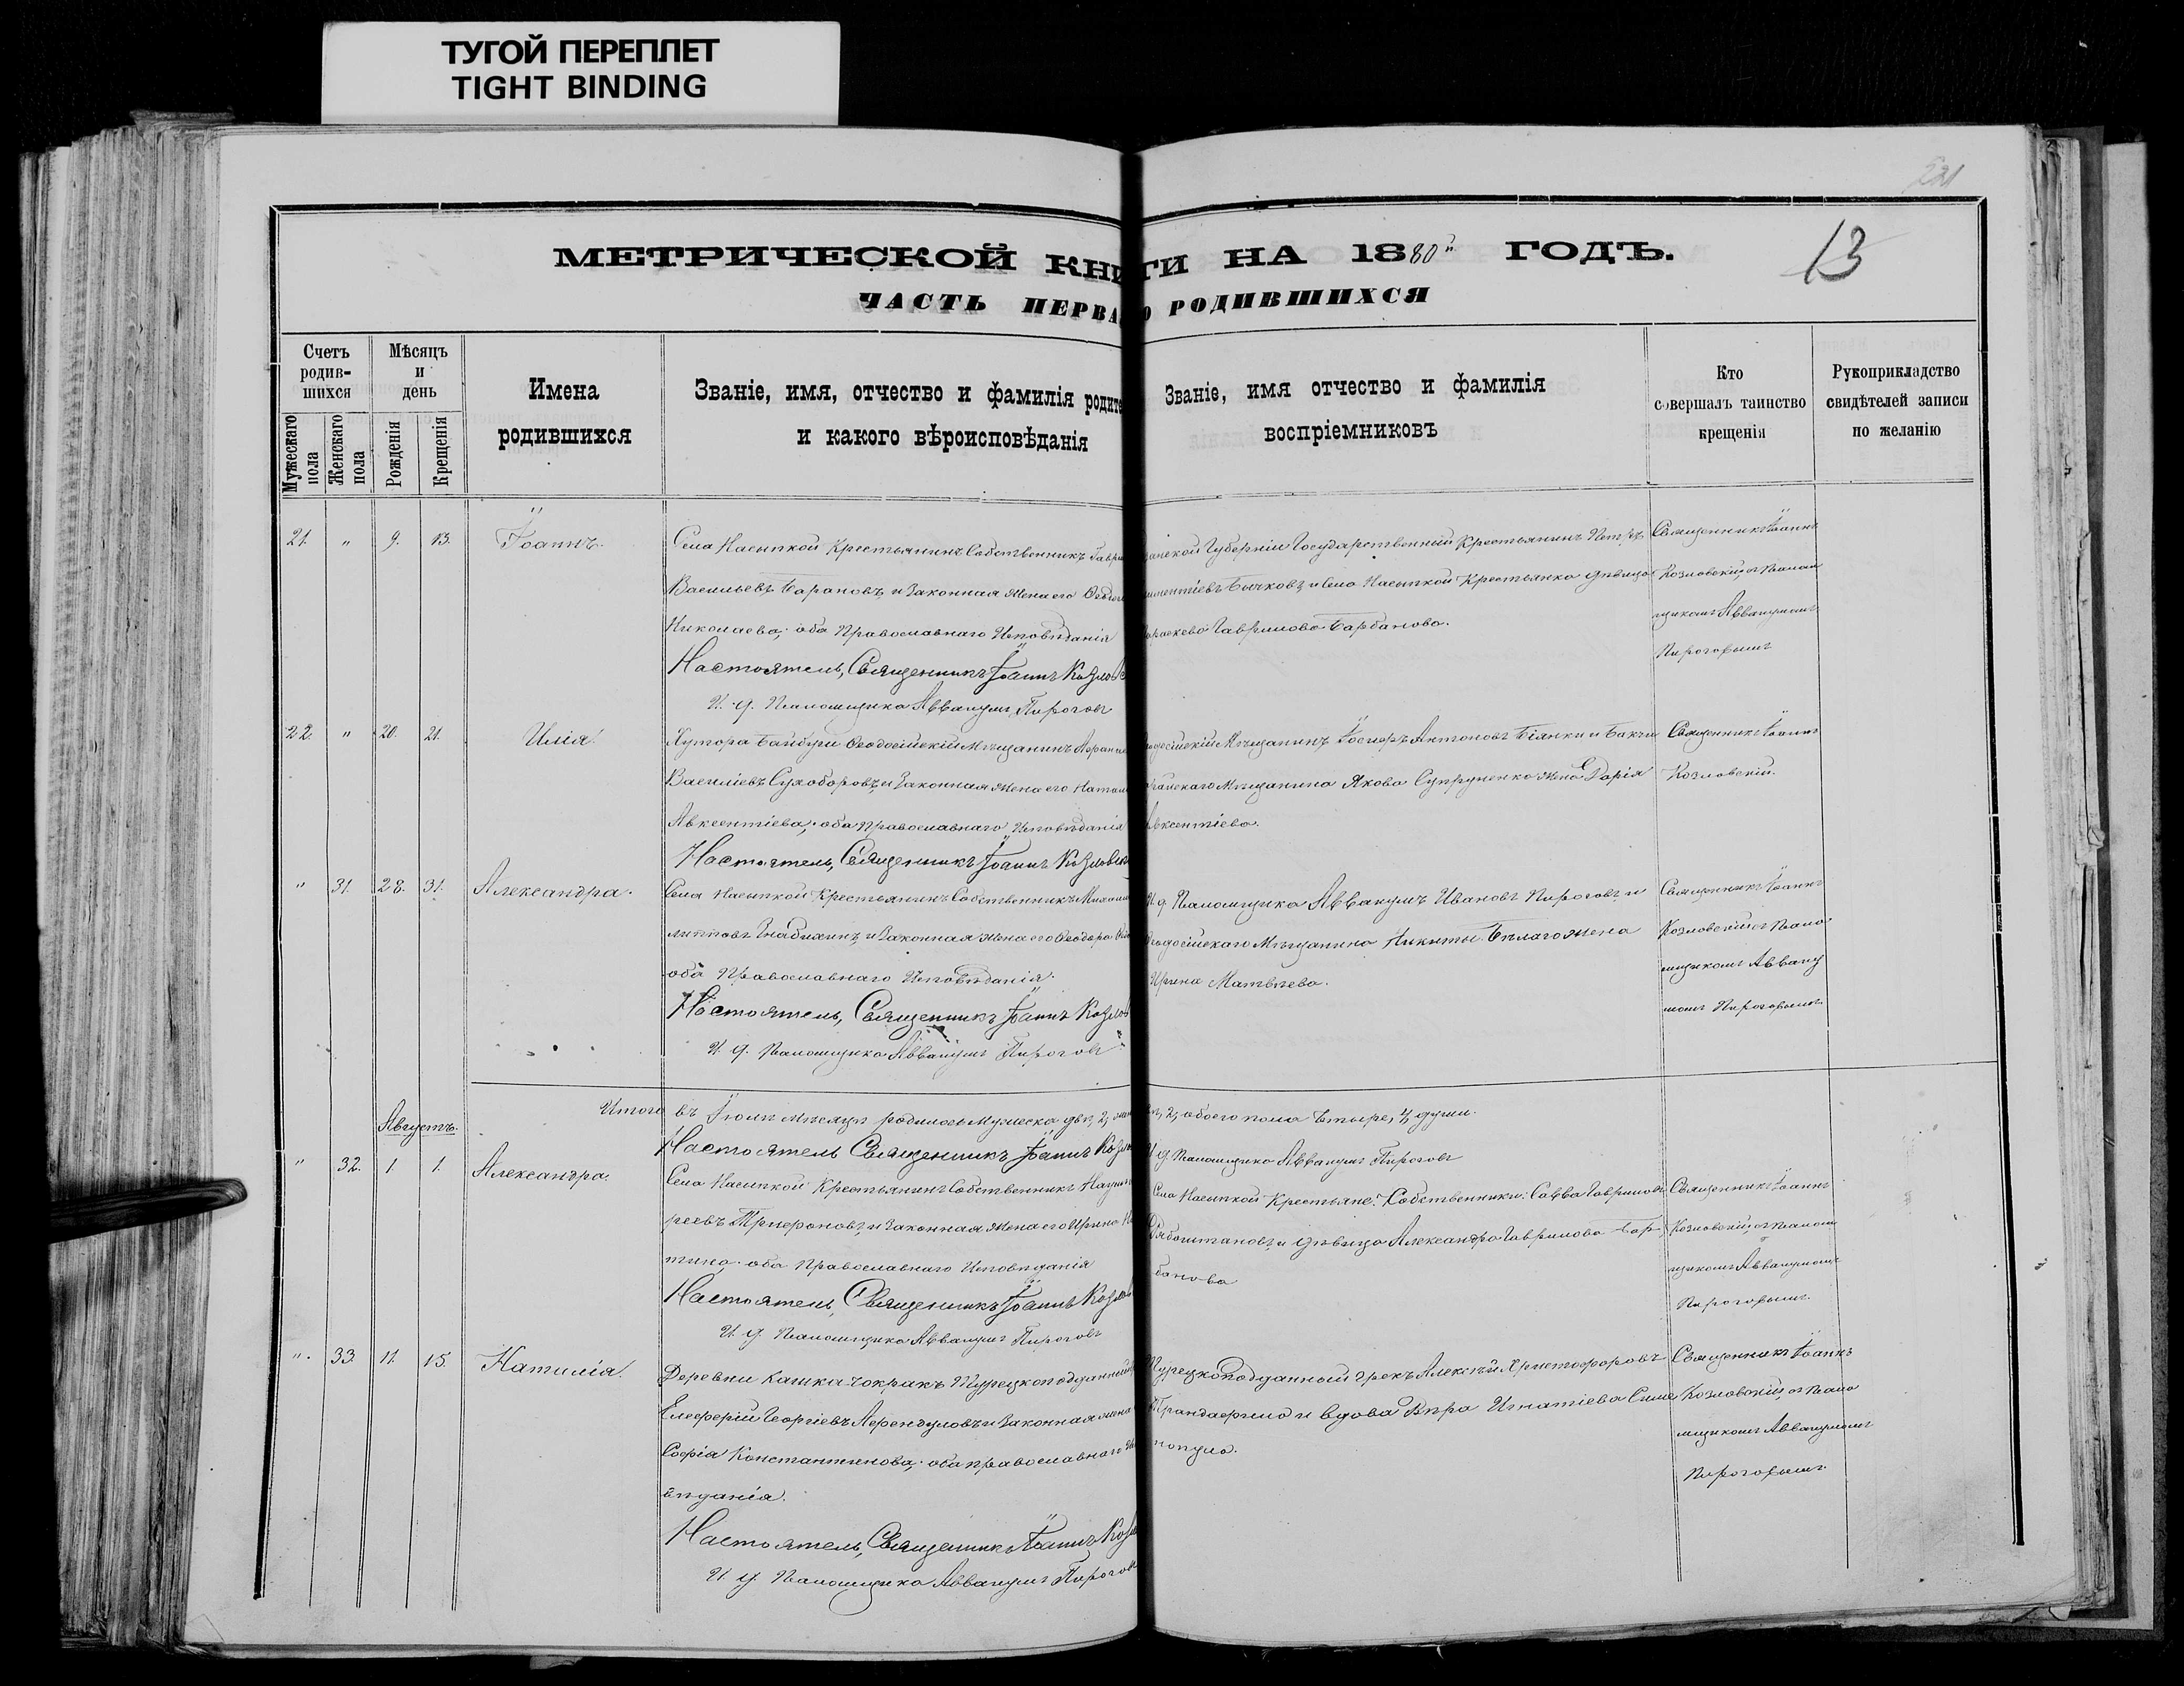 ТУГОЙ ПЕРЕПЛЕТ
TIGHT BINDING
13
МЕТРИЧЕСКОЙ КНИГИ НА 1880й ГОДЪ.
ЧАСТЬ ПЕРВА О РОДИВШИХСЯ
Счетъ родившихся
Мужескаго пола
Женскаго пола
Мѣсяцъ и день
Рожденія
Крещенія
Имена родившихся
Званіе, имя, отчество и фамилія родите
и какого вѣроисповѣданія
Званіе, имя отчество и фамилія
воспріемниковъ
Кто
совершалъ таинство
крещенія
Рукоприкладство
свидѣтелей записи
по желанію
21. " 9. 13. Іоаннъ.
Села Насыпкой Крестьянинъ Собственникъ Гаври
Васильевъ и Законная жена его
Николаева; оба Православнаго Исповѣданія
Настоятель, Священникъ Іоаннъ Козлов
И. д. Псаломщика Аввакумъ Пирогов
Губерніи Государственный Крестьянинъ Петръ
Бычковъ и Села Насыпкой Крестьянка дѣвица
Гаврилова Барбанова.
Священникъ Іоаннъ
Козловскій, съ Псалом
щикомъ Аввакумомъ
Пироговымъ
22. " 20. 21. Илія.
Хутора Байбуги Ѳеодосійскій Мѣщанинъ
Василіевъ Сухоборовъ, и Законная жена его Натал
Авксентіева; оба Православнаго Исповѣданія
Настоятель, Священникъ Іоаннъ Козловск
Мѣщанинъ Іосифъ Антоновъ Біянки и
Мѣщанина Якова Супруненко жена Дарія
вксентіева.
Священникъ Іоаннъ
Козловскій.
" 31. 28. 31. Александра.
Села Насыпкой Крестьянинъ Собственникъ
и Законная жена его Ѳеодора
оба Православнаго Исповѣданія.
Настоятель, Священникъ Іоаннъ Козлов
И. д. Псаломщика Аввакумъ Пирогов
И. д. Псаломщика Аввакумъ Ивановъ Пироговъ и
Ѳеодосійскаго Мѣщанина Никиты Бѣлаго жена
Ирина Матвѣева.
Священникъ Іоаннъ
Козловскій съ Псало
мщикомъ Авваку
момъ Пироговымъ
Итого въ Іюлѣ мѣсяцѣ родилось Мужеска два, 2,
2, обоего пола Четыре, 4, души.
Настоятель Священникъ Іоаннъ Козлов
И. д. Псаломщика Аввакумъ Пироговъ
Августъ.
" 32. 1. 1. Александра.
Села Насыпкой Крестьянинъ Собственникъ Наум
реевъ Трифоновъ, и Законная жена его Ирина
тина; оба Православнаго Исповѣданія
Настоятель, Священникъ Іоаннъ Козлов
И. д. Псаломщика Аввакумъ Пироговъ
Села Насыпкой Крестьяне: Собственники: Савва Гавриловъ
и дѣвица Александра Гаврилова Бар
банова
Священникъ Іоаннъ
Козловскій, съ Псалом
щикомъ Аввакумомъ
Пироговымъ.
" 33. 11. 15. Наталія.
Деревни Кашка-Чокракъ Турецкоподданный
Елеферій Георгіевъ и Законная жена
Софія Константинова; оба православнаго
вѣданія.
Настоятель, Священникъ Іоаннъ Козл
И. д. Псаломщика Аввакумъ Пирогов
Турецкоподданный Грекъ Алексѣй Христофоровъ
и вдова Кира Игнатіева
популо.
Священникъ Іоаннъ
Козловскій, съ Псало
мщикомъ Аввакумомъ
Пироговымъ.